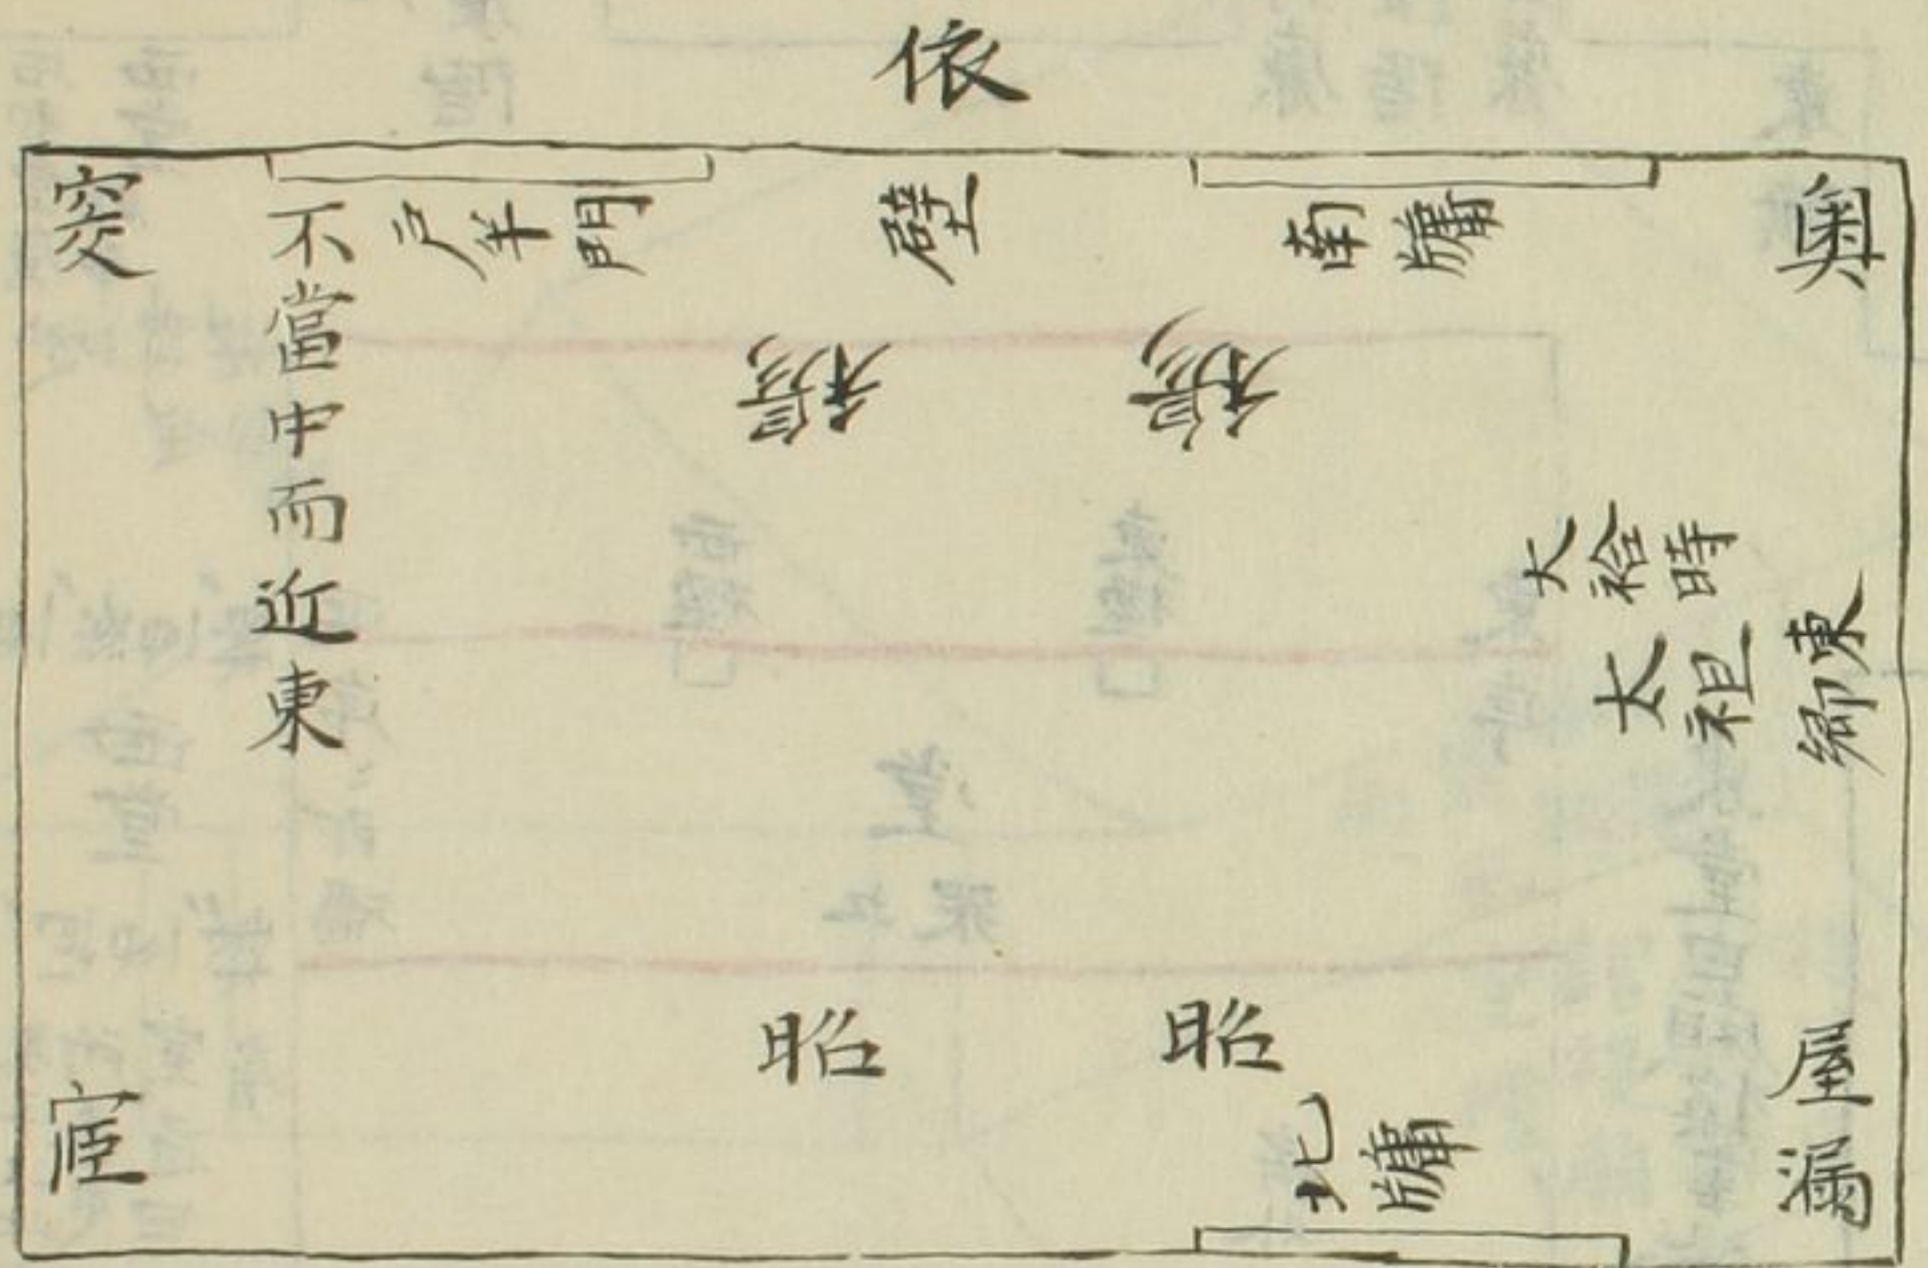 依
奧
南牖
壁
戶半門
穾
不當中而近東
穆
穆
大祫時
太祖
東鄉
昭
昭
北牖
屋漏
宧